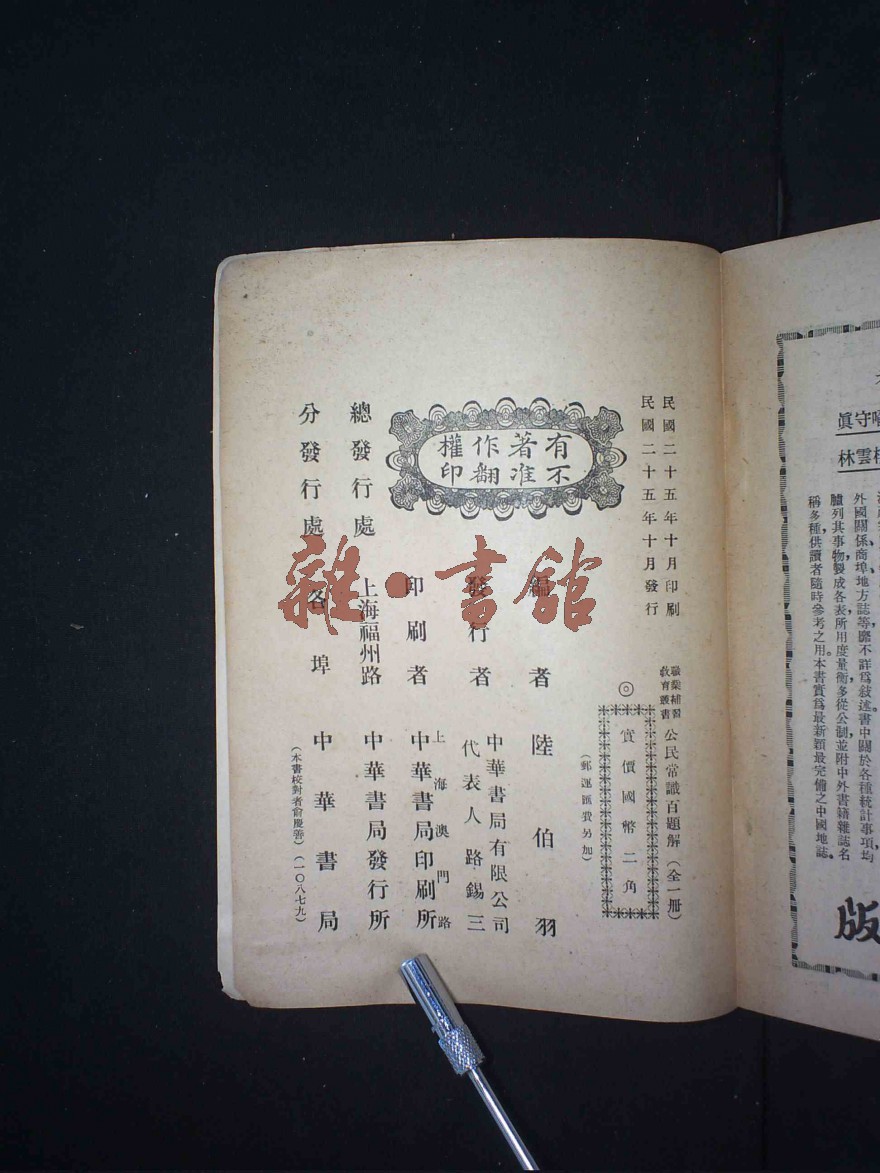 民國二十五年十月印刷
民國二十五年十月發行
職業補習
教育叢書
公民常識百題解(全一册)
◎
實價國幣二角
(郵運匯費另加)
有著作權
不准翻印
編者 陸伯羽
發行者 中華書局有限公司
代表人路錫三
印刷者 上海澳門路
中華書局印刷所
總發行處 上海福州路 中華書局發行所
分發行處 各埠 中華書局
(本書校對者俞慶善)(一〇八七九)
雜·書館
眞守
林雲
外國關係商埠地方誌等靡不詳爲敍述書中關於各種統計事項,均
臚列其事物製成各表所用度量衡多從公制並附中外書籍雜誌名
稱多種供讀者隨時參考之用。本書實爲最新穎最完備之中國地誌。
版